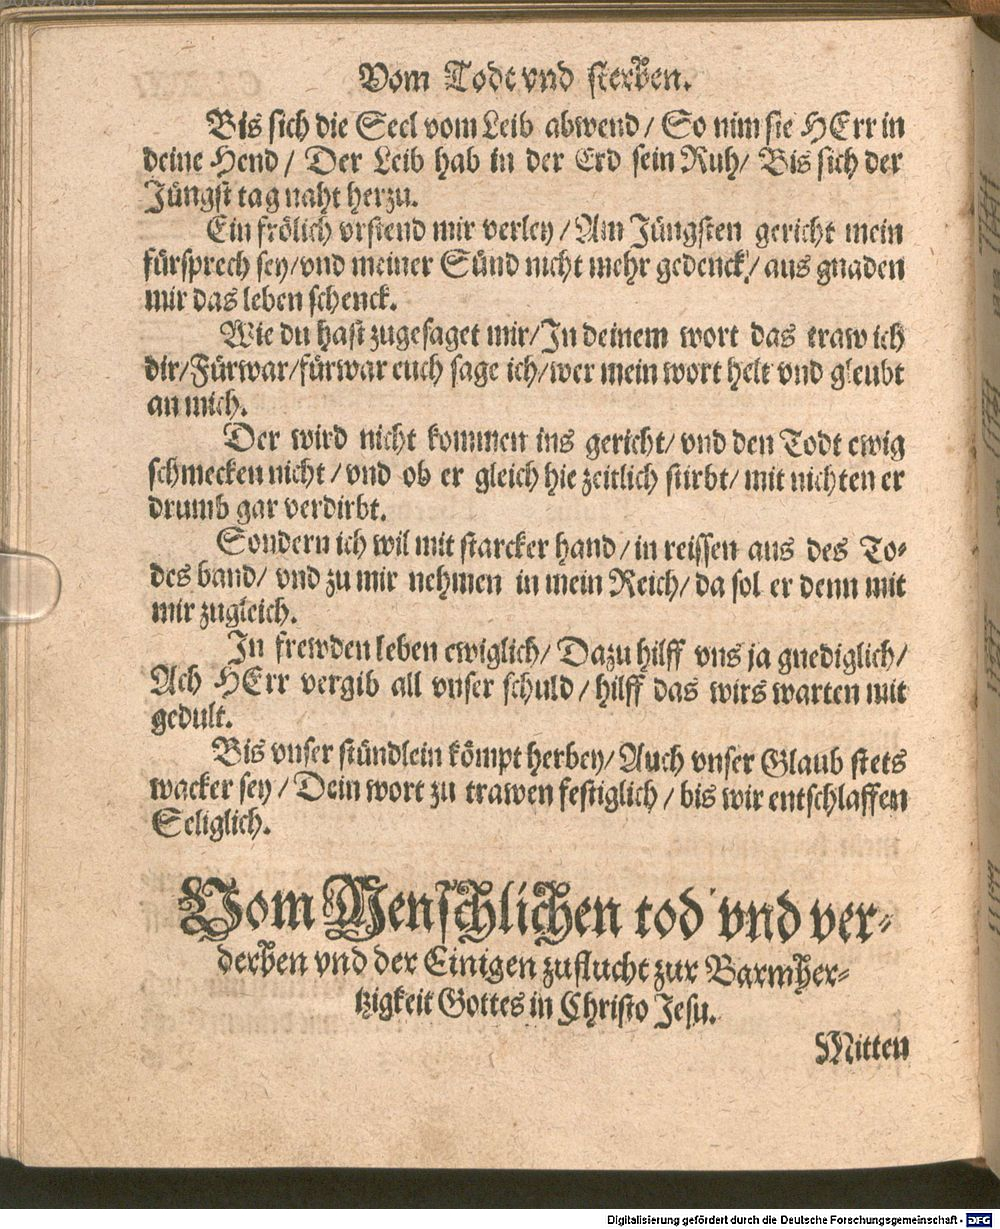 Vom Todt vnd sterben.
Bis sich die Seel vom Leib abwend / So nim sie HErr in
deine Hend / Der Leib hab in der Erd sein Ruh / Bis sich der
Jüngst tag naht herzu.
Ein frölich vrstend mir verley / Am Jüngsten gericht mein
fürsprech sey / vnd meiner Sünd nicht mehr gedenck / aus gnaden
mir das leben schenck.
Wie du hast zugesaget mir / In deinem wort das traw ich
dir / Fürwar / fürwar euch sage ich / wer mein wort helt vnd gleubt
an mich.
Der wird nicht kommen ins gericht / vnd den Todt ewig
schmecken nicht / vnd ob er gleich hie zeitlich stirbt / mit nichten er
drumb gar verdirbt.
Sondern ich wil mit starcker hand / in reissen aus des To-
des band / vnd zu mir nehmen in mein Reich / da sol er denn mit
mir zugleich.
In frewden leben ewiglich / Dazu hilff vns ja gnediglich /
Ach HErr vergib all vnser schuld / hilff das wirs warten mit
gedult.
Bis vnser stündlein kömpt herbey / Auch vnser Glaub stets
wacker sey / Dein wort zu trawen festiglich / bis wir entschlaffen
Seliglich.
Vom Menschlichen tod vnd ver-
derben vnd der Einigen zuflucht zur Barmher-
tzigkeit Gottes in Christo Jesu.
Mitten
Digitalisierung gefördert durch die Deutsche Forschungsgemeinschaft - DFG